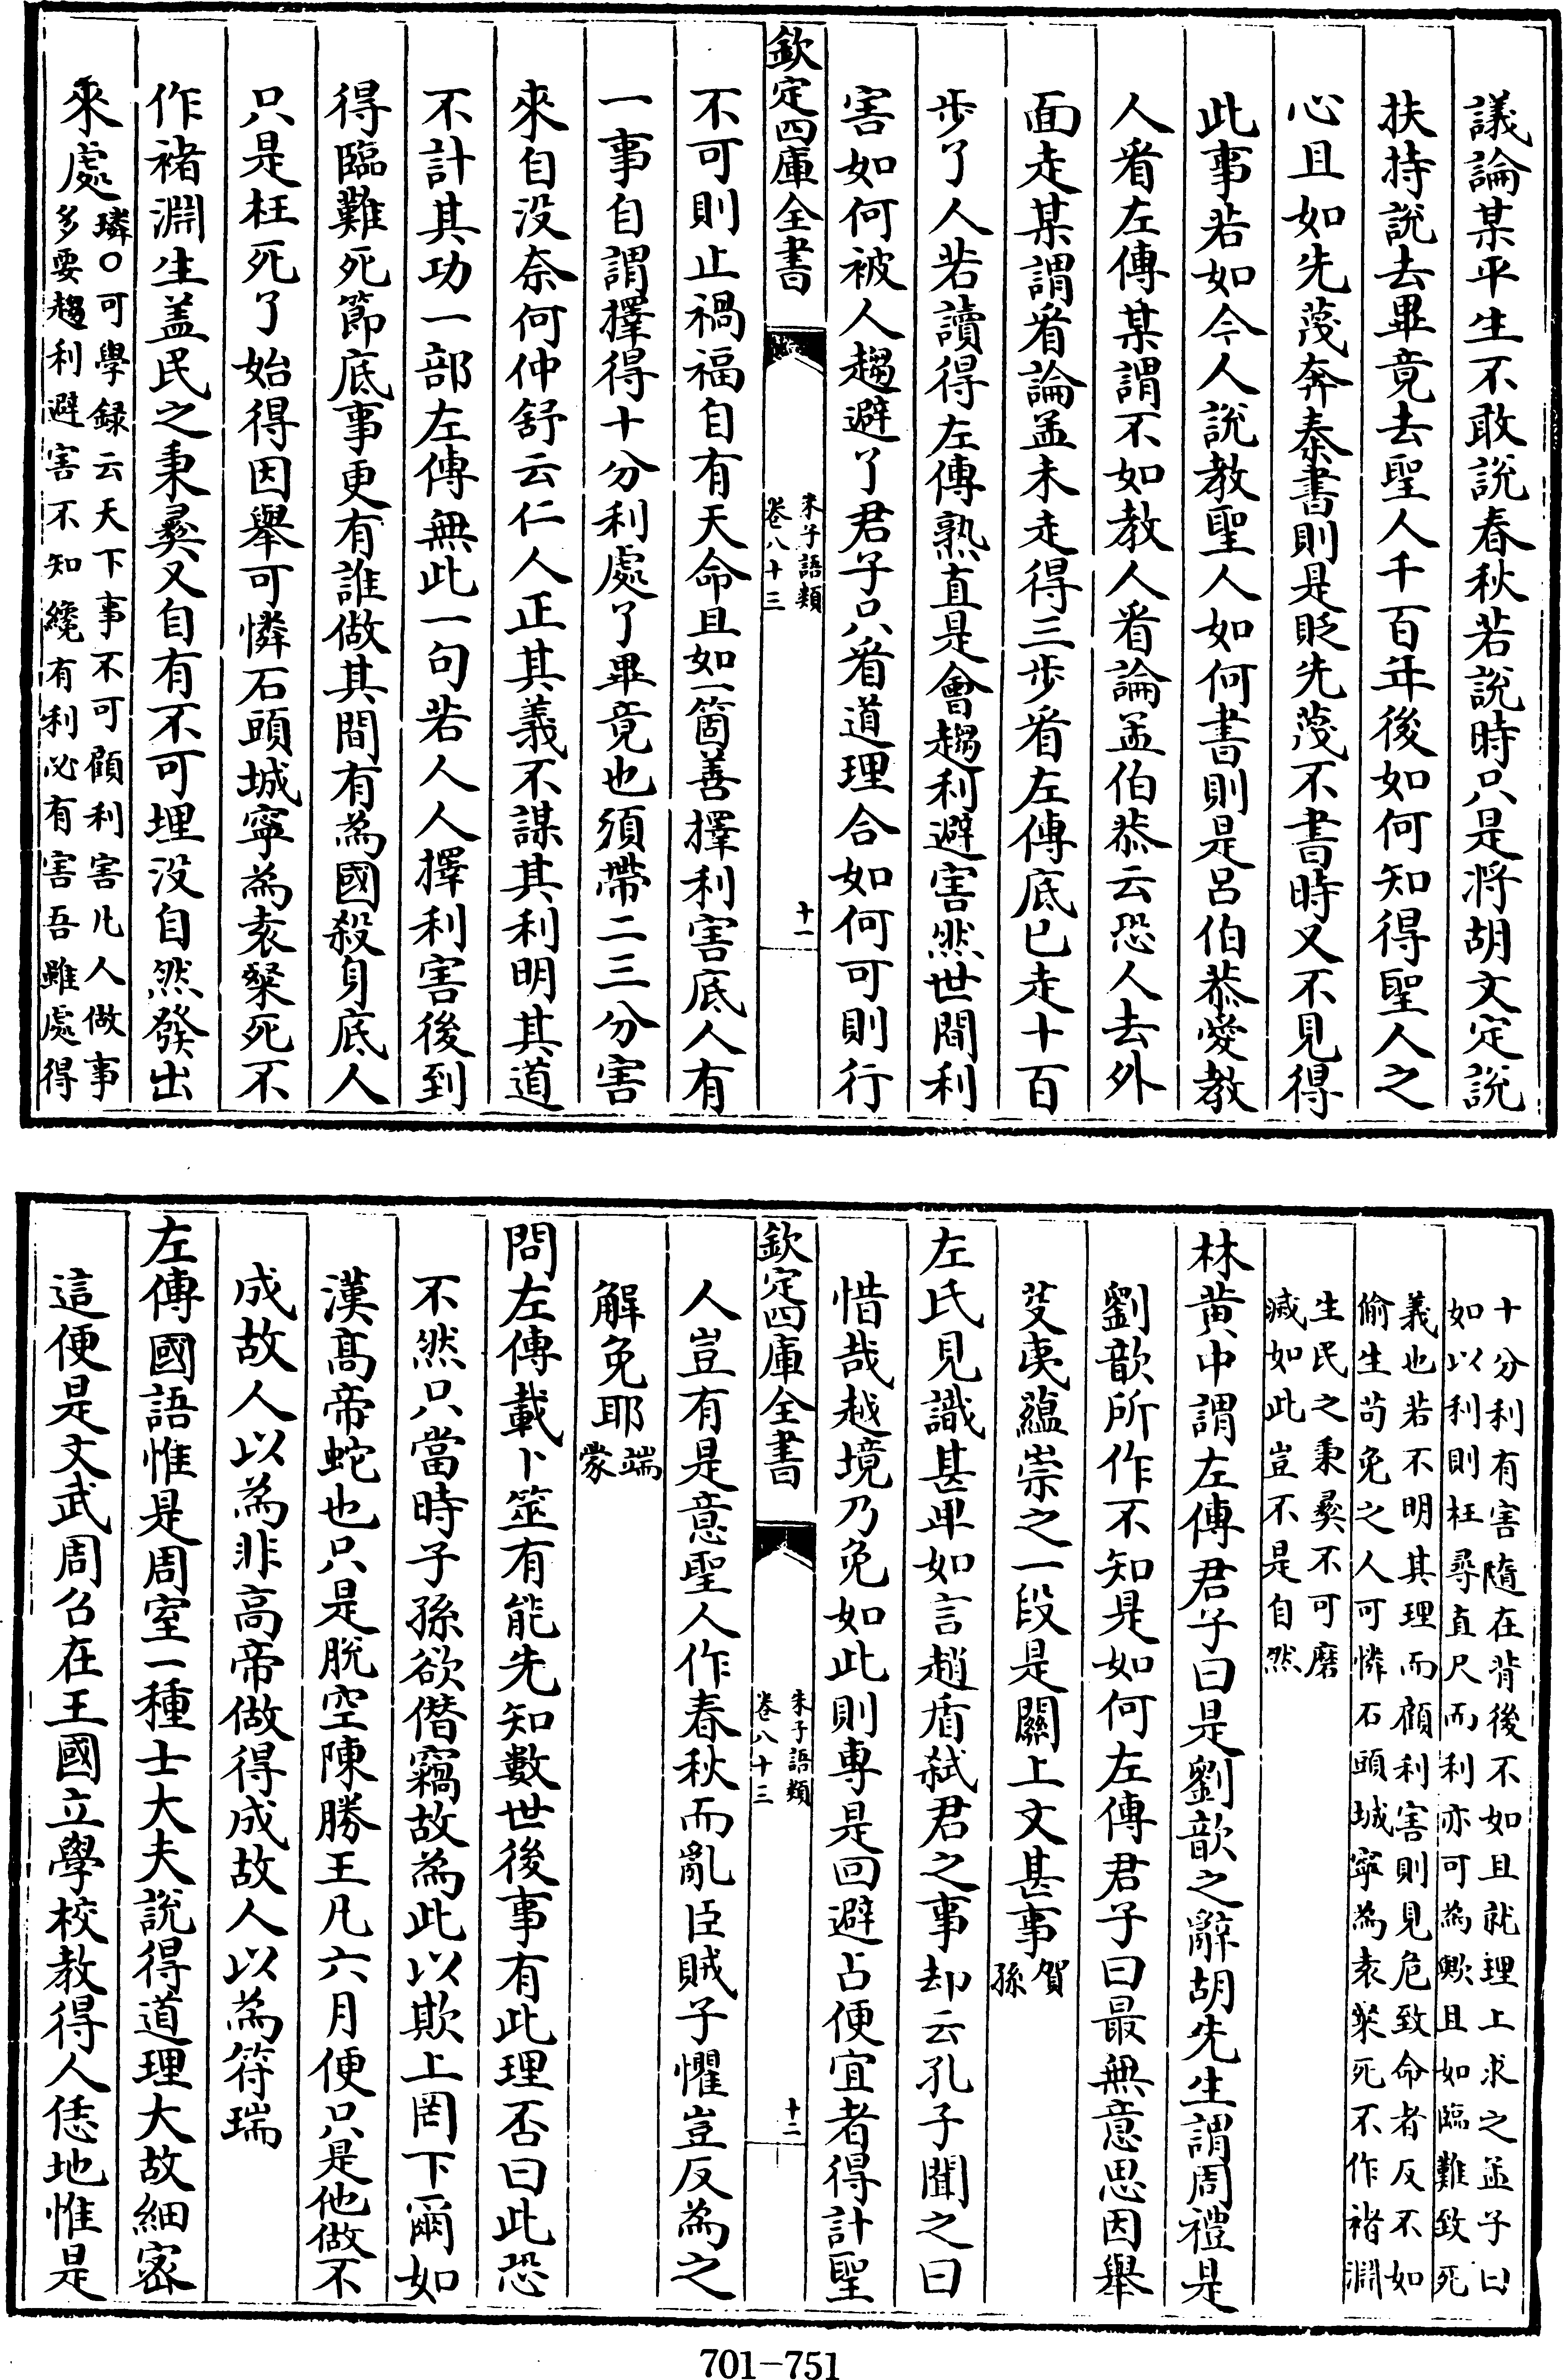 議論某平生不敢説春秋若説時只是將胡文定說
扶持說去畢竟去聖人千百年後如何知得聖人之
心且如先蔑奔秦書則是貶先蔑不書時又不見得
此事若如今人說教聖人如何書則是吕伯恭愛教
人看左傳某謂不如教人看論孟伯恭云恐人去外
面走某謂看論孟未走得三步看左傳底已走十百
步了人若讀得左傳熟直是會趨利避害然世間利
害如何被人趨避了君子只看道理合如何可則行
欽定四庫全書
朱子語類
卷八十三
十一
不可則止禍福自有天命且如一箇善擇利害底人有
一事自謂擇得十分利處了畢竟也須帶二三分害
來自没奈何仲舒云仁人正其義不謀其利明其道
不計其功一部左傳無此一句若人人擇利害後到
得臨難死節底事更有誰做其間有為國殺身底人
只是枉死了始得因舉可憐石頭城寧為袁粲死不
作褚淵生盖民之秉彞又自有不可埋没自然發出
來處
璘○可學録云天下事不可顧利害凡人做事
多要趨利避害不知纔有利必有害吾雖處得
十分利有害隨在背後不如且就理上求之孟子曰
如以利則枉尋直尺而利亦可為歟且如臨難致死
義也若不明其理而顧利害則見危致命者反不如
偷生苟免之人可憐石頭城寧為袁粲死不作褚淵
生民之秉彞不可磨
滅如此豈不是自然
林黄中謂左傳君子曰是劉歆之辭胡先生謂周禮是
劉歆所作不知是如何左傳君子曰最無意思因舉
芟夷藴崇之一段是關上文甚事
賀
孫
左氏見識甚卑如言趙盾弑君之事却云孔子聞之曰
惜哉越境乃免如此則専是回避占便宜者得計聖
欽定四庫全書
朱子語類
卷八十三
十二
人豈有是意聖人作春秋而亂臣賊子懼豈反為之
解免耶
端
蒙
問左傳載卜筮有能先知數世後事有此理否曰此恐
不然只當時子孫欲僭竊故為此以欺上罔下爾如
漢髙帝蛇也只是脱空陳勝王凡六月便只是他做不
成故人以為非高帝做得成故人以為符瑞
左傳國語惟是周室一種士大夫說得道理大故細宻
這便是文武周召在王國立學校教得人恁地惟是
701-751